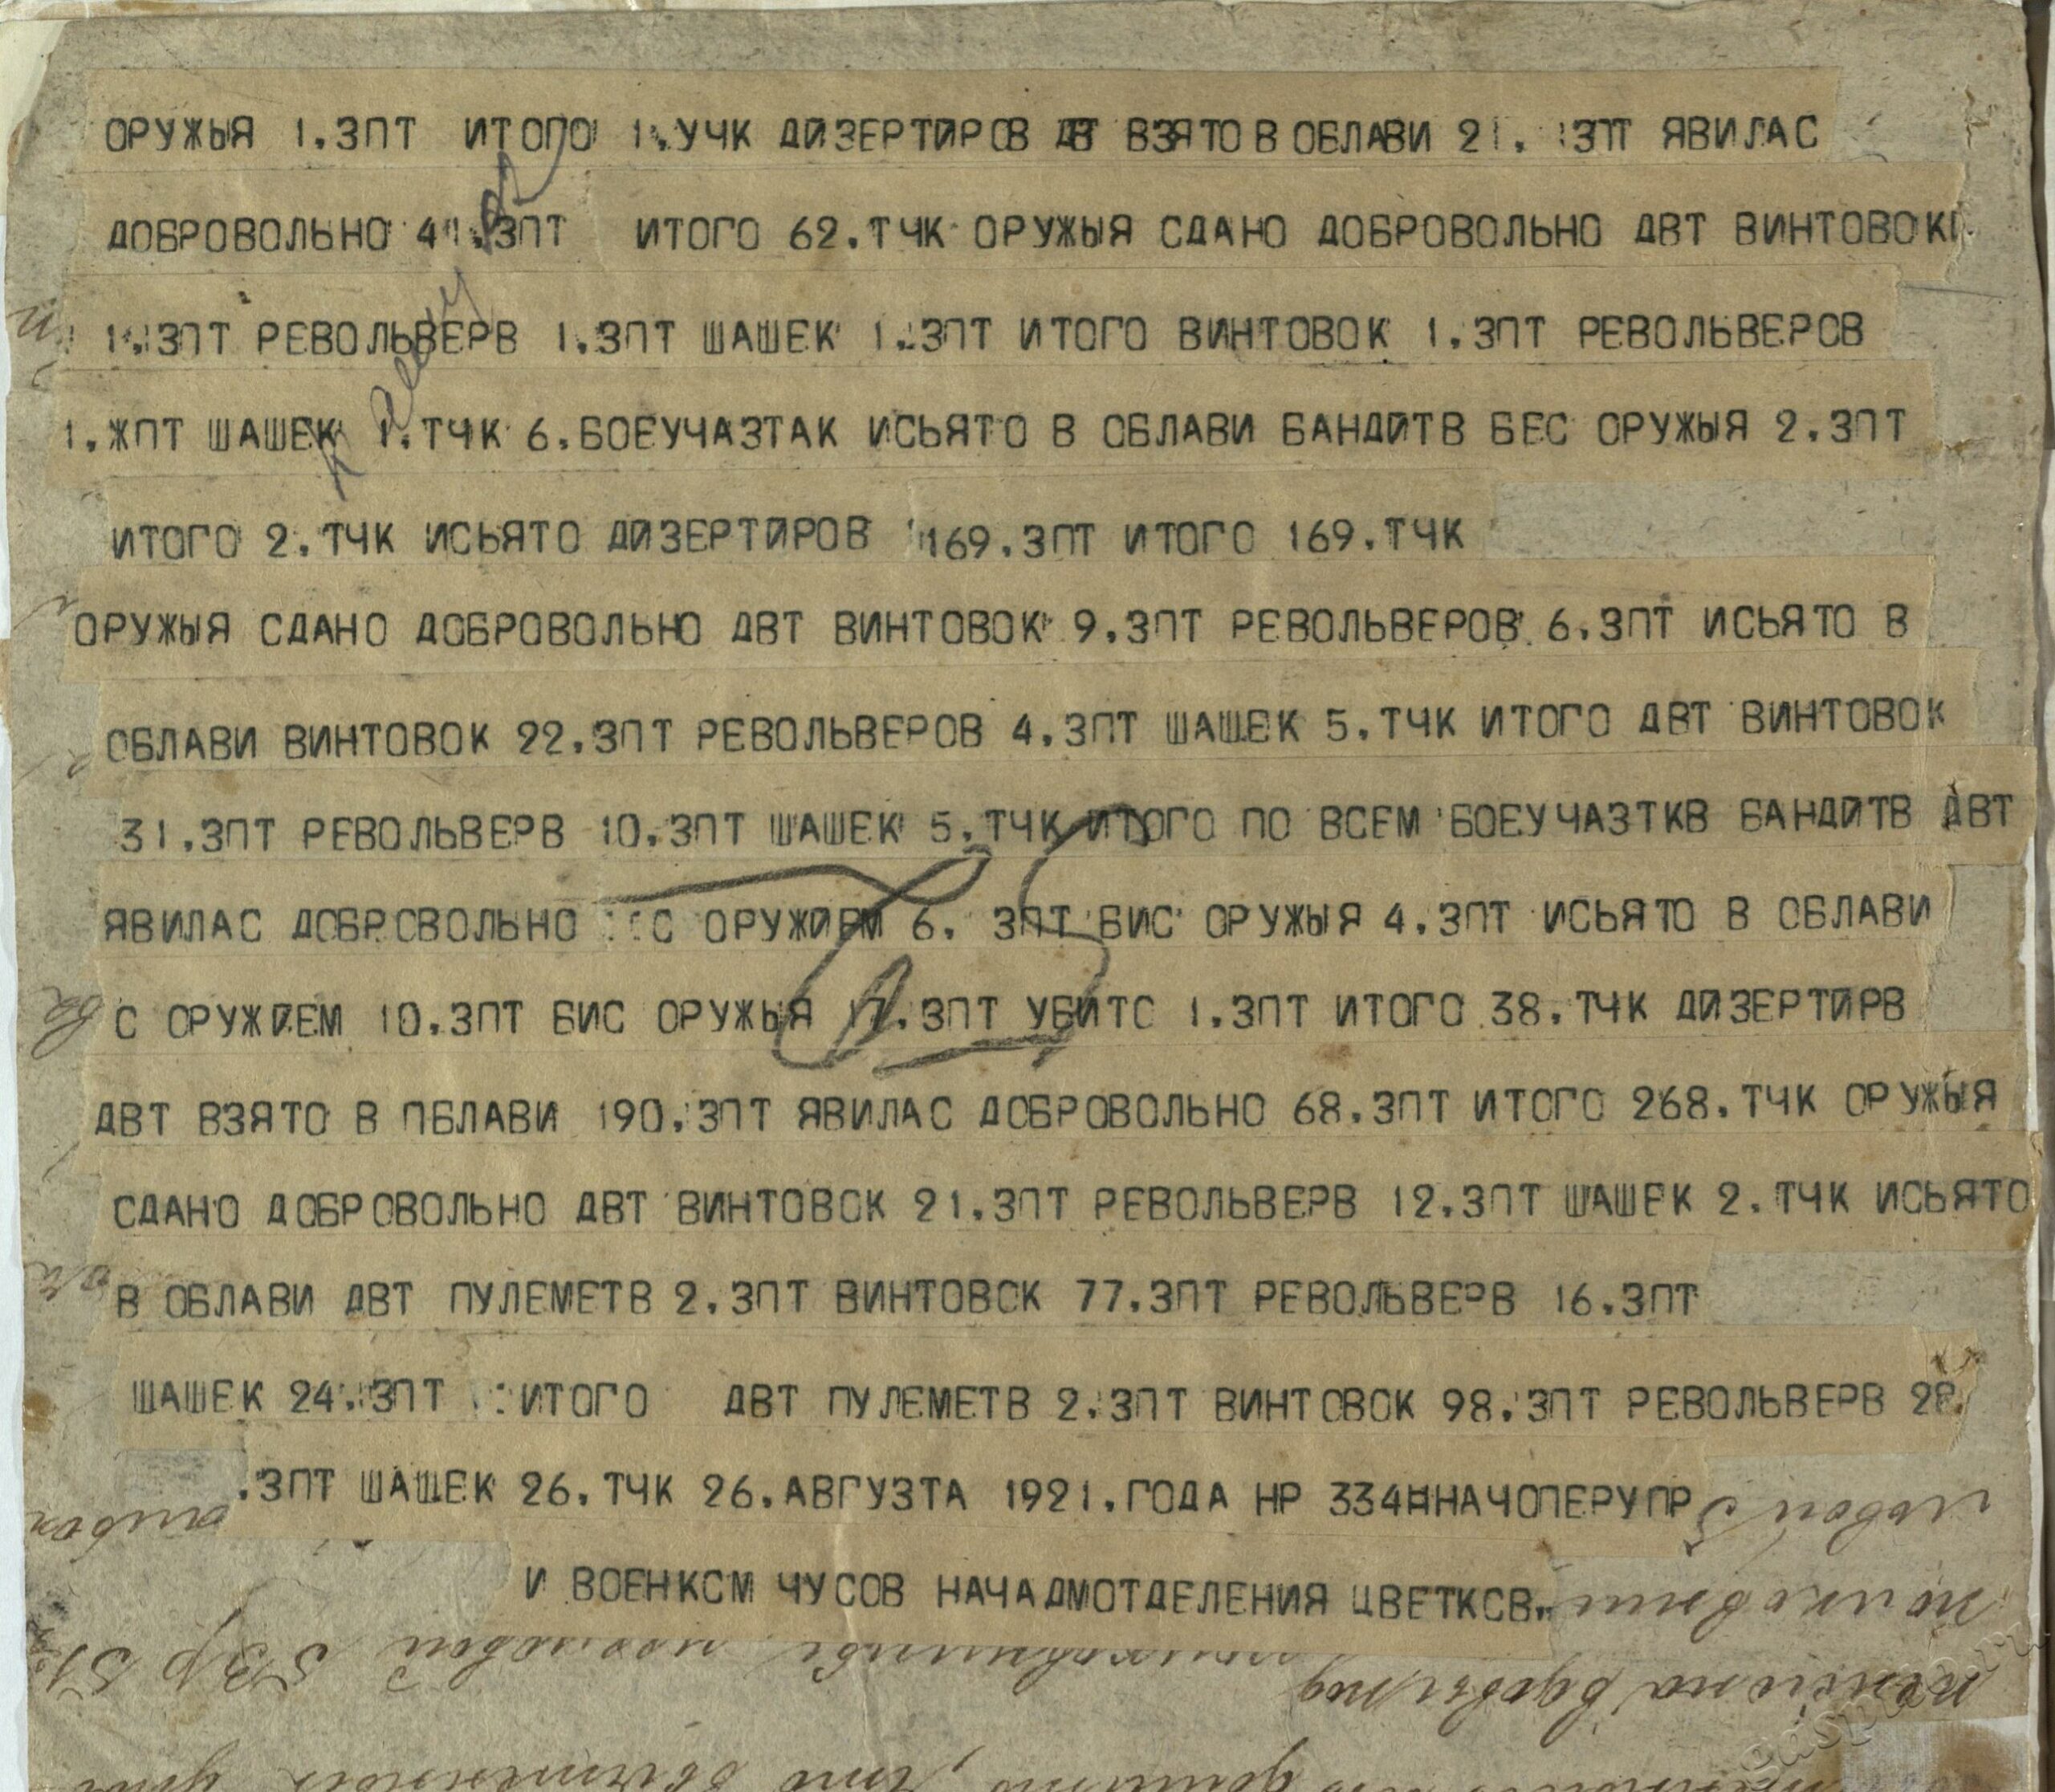 ОРУЖЫЯ 1.ЗПТ ИТОГО 1.УЧК ДИЗЕРТИРОВ ДВТ ВЗЯТО В ОБЛАВИ 21. ЗПТ ЯВИЛАС
ДОБРОВОЛЬНО 41.ЗПТ ИТОГО 62.ТЧК ОРУЖЫЯ СДАНО ДОБРОВОЛЬНО ДВТ ВИНТОВОК
1.ЗПТ РЕВОЛЬВЕРВ 1.ЗПТ ШАШЕК 1.ЗПТ ИТОГО ВИНТОВОК 1.ЗПТ РЕВОЛЬВЕРОВ
1.ЖПТ ШАШЕК 1.ТЧК 6.БОЕУЧАЗТАК ИСЬЯТО В ОБЛАВИ БАНДИТВ БЕС ОРУЖЫЯ 2.ЗПТ
ИТОГО 2.ТЧК ИСЬЯТО ДИЗЕРТИРОВ 169.ЗПТ ИТОГО 169.ТЧК
ОРУЖЫЯ СДАНО ДОБРОВОЛЬНО ДВТ ВИНТОВОК 9.ЗПТ РЕВОЛЬВЕРОВ 6.ЗПТ ИСЬЯТО В
ОБЛАВИ ВИНТОВОК 22.ЗПТ РЕВОЛЬВЕРОВ 4.ЗПТ ШАШЕК 5.ТЧК ИТОГО ДВТ ВИНТОВОК
31.ЗПТ РЕВОЛЬВЕРВ 10.ЗПТ ШАШЕК 5.ТЧК ИТОГО ПО ВСЕМ БОЕУЧАЗТКВ БАНДИТВ ДВТ
ЯВИЛАС ДОБРОВОЛЬНО С ОРУЖИЕМ 6. ЗПТ БИС ОРУЖЫЯ 4.ЗПТ ИСЬЯТО В ОБЛАВИ
С ОРУЖИЕМ 10.ЗПТ БИС ОРУЖЫЯ 17.ЗПТ УБИТО 1.ЗПТ ИТОГО 38.ТЧК ДИЗЕРТИРВ
ДВТ ВЗЯТО В ПБЛАВИ 190.ЗПТ ЯВИЛАС ДОБРОВОЛЬНО 68.ЗПТ ИТОГО 268.ТЧК ОРУЖЫЯ
СДАНО ДОБРОВОЛЬНО ДВТ ВИНТОВОК 21.ЗПТ РЕВОЛЬВЕРВ 12.ЗПТ ШАШЕК 2.ТЧК ИСЬЯТО
В ОБЛАВИ ДВТ ПУЛЕМЕТВ 2.ЗПТ ВИНТОВОК 77.ЗПТ РЕВОЛЬВЕРВ 16.ЗПТ
ШАШЕК 24.ЗПТ ИТОГО ДВТ ПУЛЕМЕТВ 2.ЗПТ ВИНТОВОК 98.ЗПТ РЕВОЛЬВЕРВ 28
.ЗПТ ШАШЕК 26.ТЧК 26.АВГУЗТА 1921.ГОДА НР 334 НАЧОПЕРУПР
И ВОЕНКОМ ЧУСОВ НАЧАДМОТДЕЛЕНИЯ ЦВЕТКОВ.